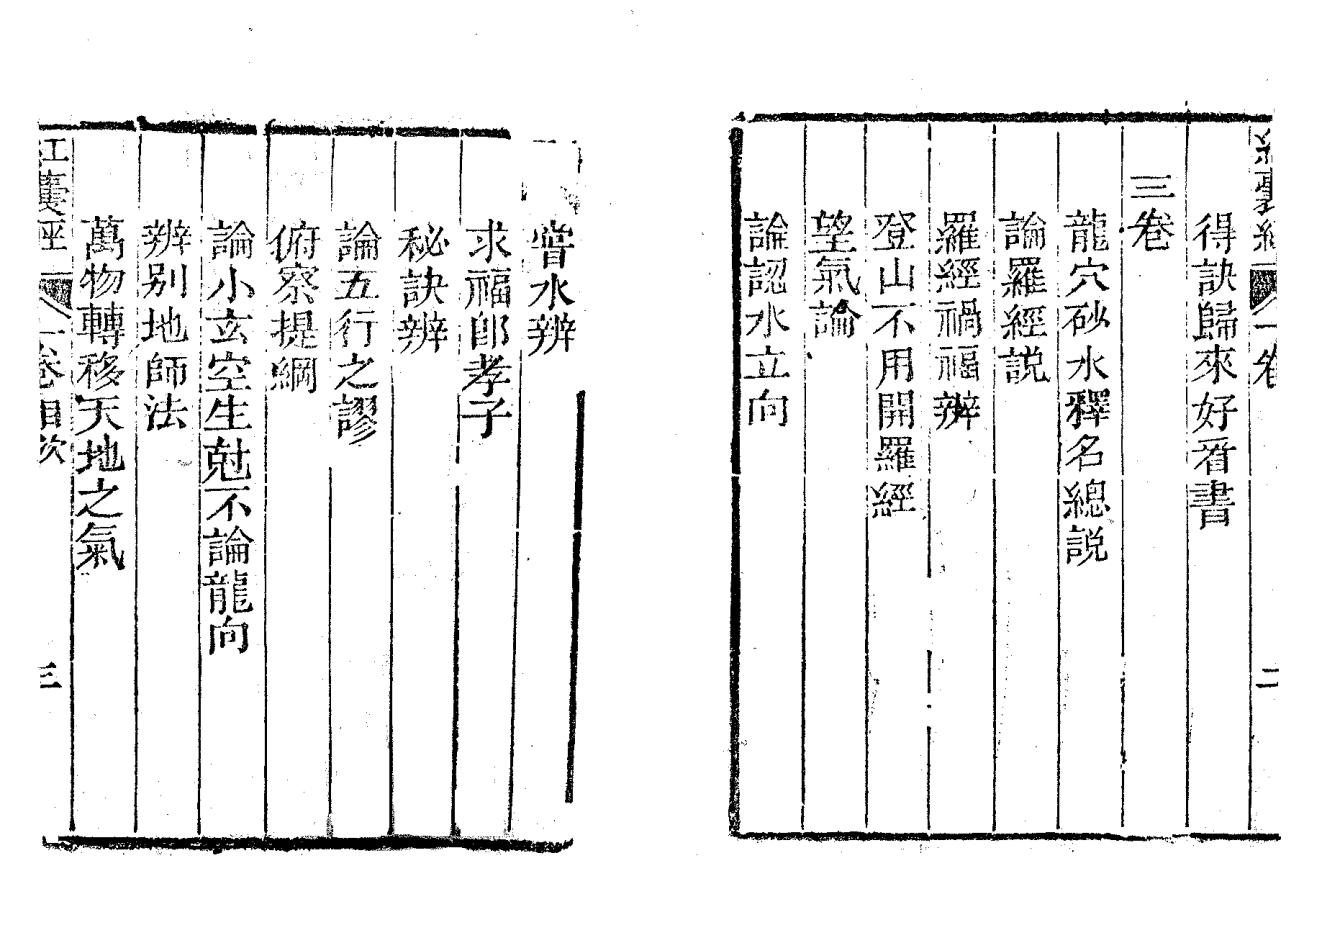 得訣歸來好看書
三卷
龍穴砂水釋名總説
論羅經説
羅經禍福辨
登山不用開羅經
望氣論
論認水立向
嘗水辨
求福即孝子
秘訣辨
論五行之謬
俯察提綱
論小玄空生尅不論龍向
辨别地師法
萬物轉移天地之氣
一卷目次
三